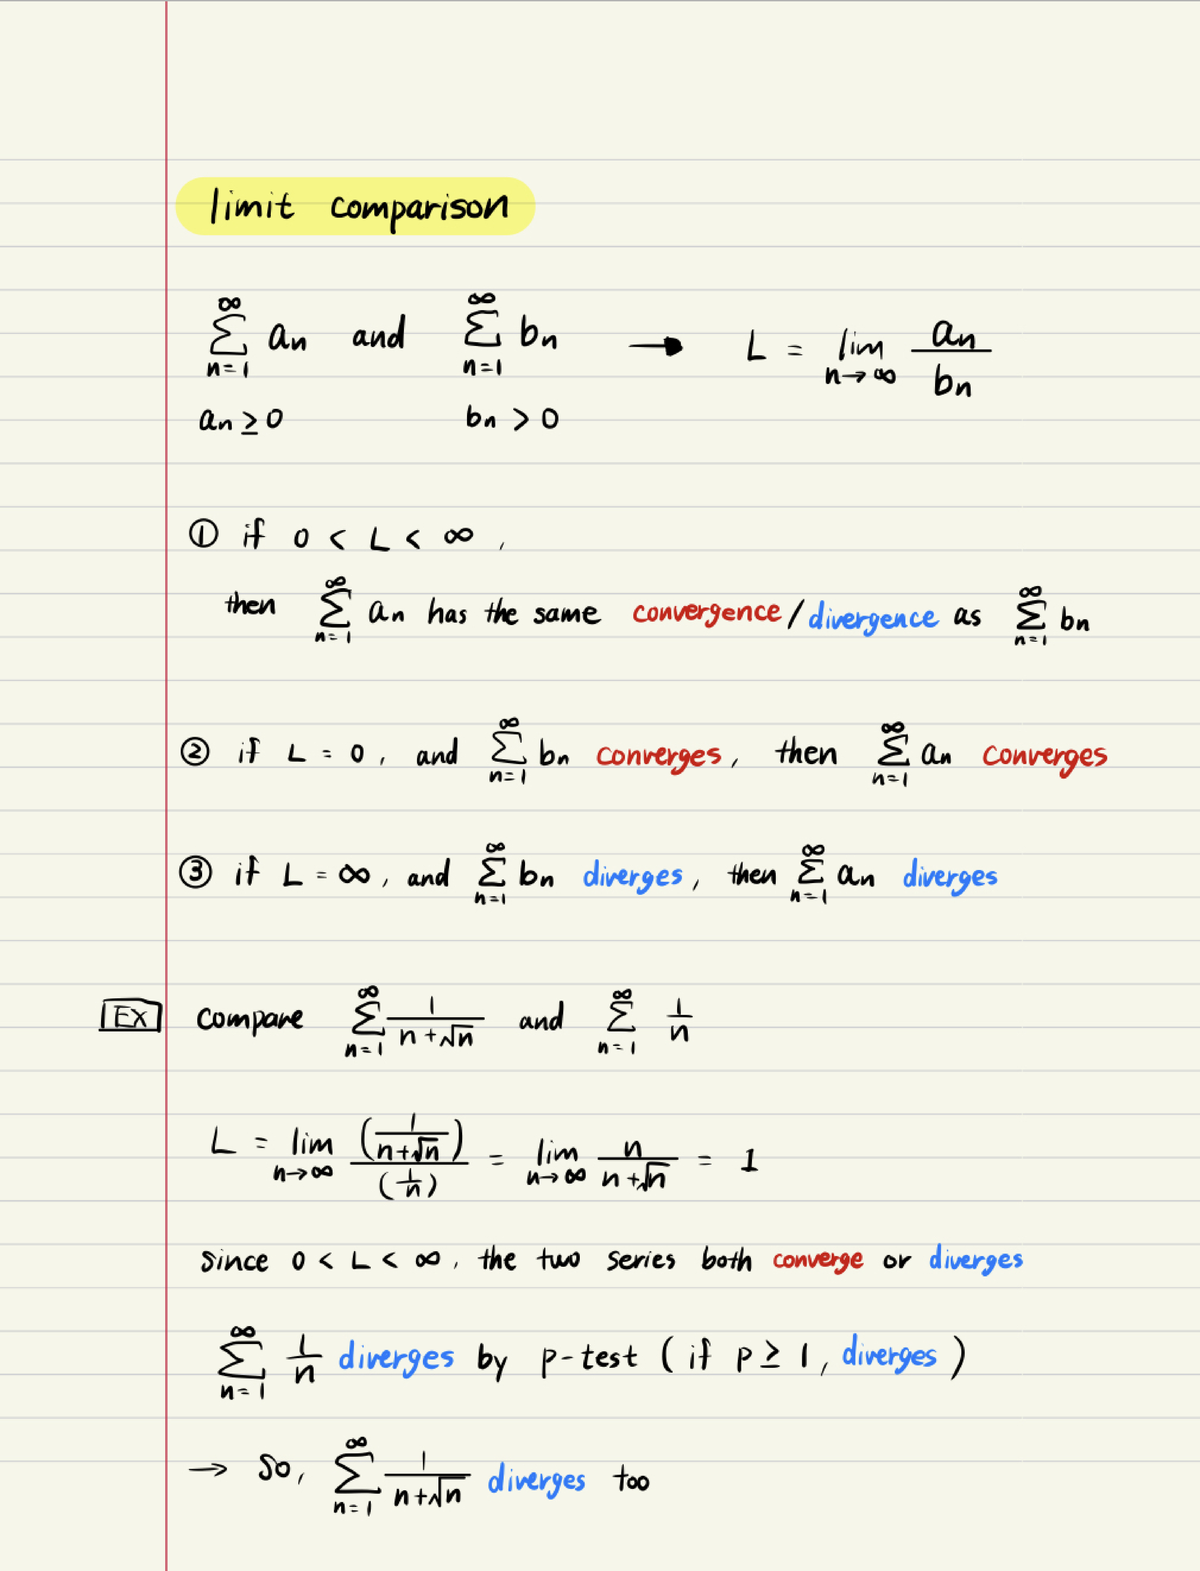 limit comparison
∞∑n=1 an and ∞∑n=1 bn → L = lim n→∞ an/bn
an ≥ 0 bn > 0
① if 0 < L < ∞ ,
then ∞∑n=1 an has the same convergence / divergence as ∞∑n=1 bn
② if L = 0, and ∞∑n=1 bn converges, then ∞∑n=1 an converges
③ if L = ∞, and ∞∑n=1 bn diverges, then ∞∑n=1 an diverges
EX compare ∞∑n=1 1/(n+√n) and ∞∑n=1 1/n
L = lim n→∞ (1/(n+√n))/(1/n) = lim n→∞ n/(n+√n) = 1
since 0 < L < ∞, the two series both converge or diverges
∞∑n=1 1/n diverges by p-test (if p ≥ 1, diverges)
→ so, ∞∑n=1 1/(n+√n) diverges too